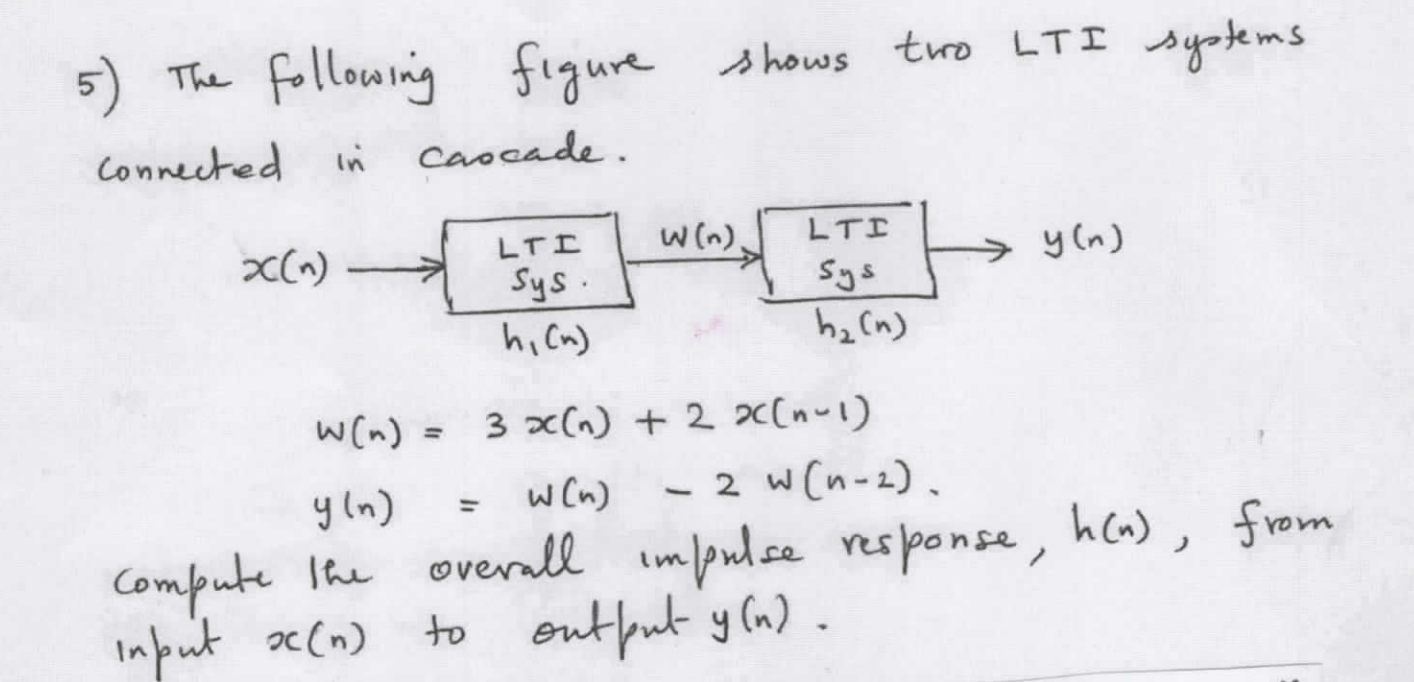 5) The following figure shows two LTI systems
connected in cascade.
x(n) LTI Sys. w(n) LTI Sys y(n)
h₁(n) h₂(n)
w(n) = 3 x(n) + 2 x(n-1)
y(n) = w(n) - 2 w(n-2).
compute the overall impulse response, h(n), from
input x(n) to output y(n).